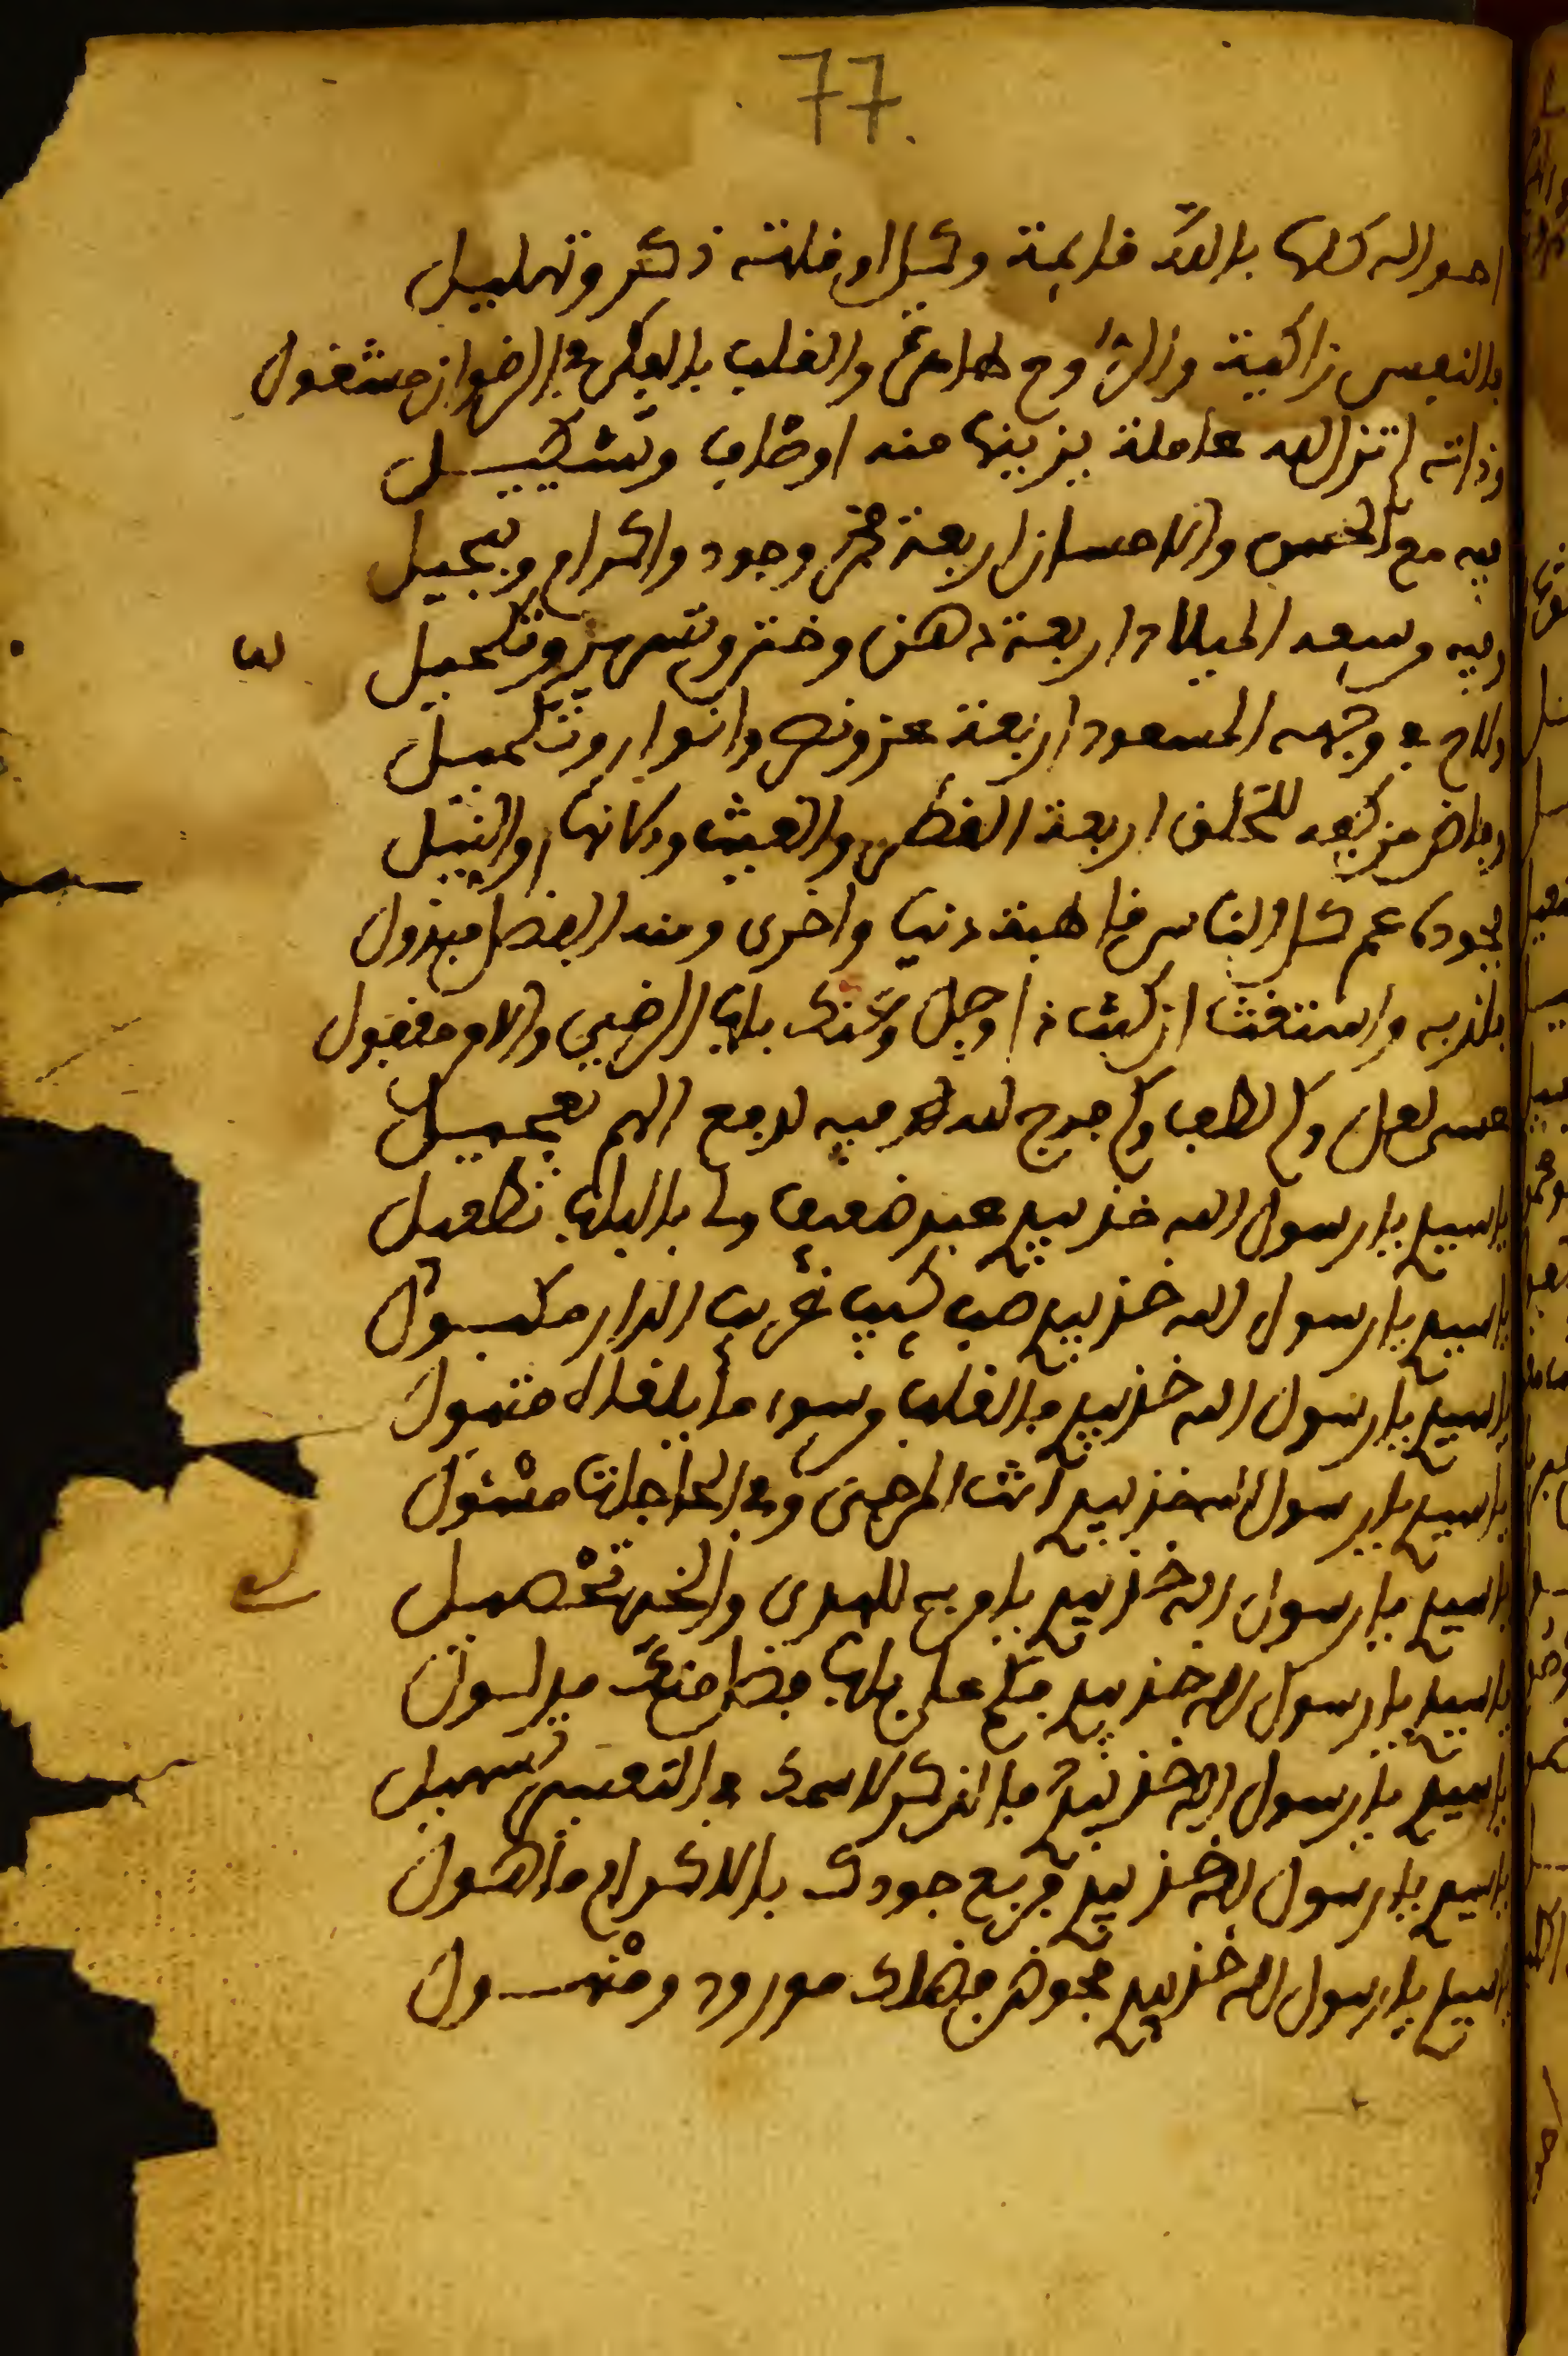 77.
احواله كلها بالله قايمة وكل اوقاته ذكر وتهليل
بالنفس زاكية والروح طاهرة والقلب بالفكر في الرضوان مشغول
وذاته لم تزل لله عاملة يزينها منه اوصاف وتشكيل
فيه مع الحسن والاحسان اربعة فخر وجود واكرام وتبجيل
وفيه وسعد الميلاد اربعة دهن وختن وتسرير وتكحيل
ولاح في وجهه المسعود اربعة عز ونصر وانوار وتكميل
وفاض من كفه للخلق اربعة القطر والغيث والنيل
بجوده عم كل الناس قاطبة دنيا واخرى ومنه الفضل مبذول
فلذ به واستغث ان كنت ذا وجل باب الرضى مقفول
عسى لعل وكم لطف وكم فرج لله فيه لدفع الهم تعجيل
يا سيدي يا رسول الله خذ بيدي عبد ضعيف ولي بالباب تطفيل
يا سيدي يا رسول الله خذ بيدي صب كئيب غريب الدار مكبول
يا سيدي يا رسول الله خذ بيدي فالقلب متبول
يا سيدي يا رسول الله خذ بيدي انت المرجى وفي الحاجات مسئول
يا سيدي يا رسول الله خذ بيدي للهدى والخير تحصيل
يا سيدي يا رسول الله خذ بيدي
يا سيدي يا رسول الله خذ بيدي فالذكر لاسمك في التعسير تسهيل
يا سيدي يا رسول الله خذ بيدي فربع جودك بالاكرام ماهول
يا سيدي يا رسول الله خذ بيدي فحوض فضلك مورود ومنهول